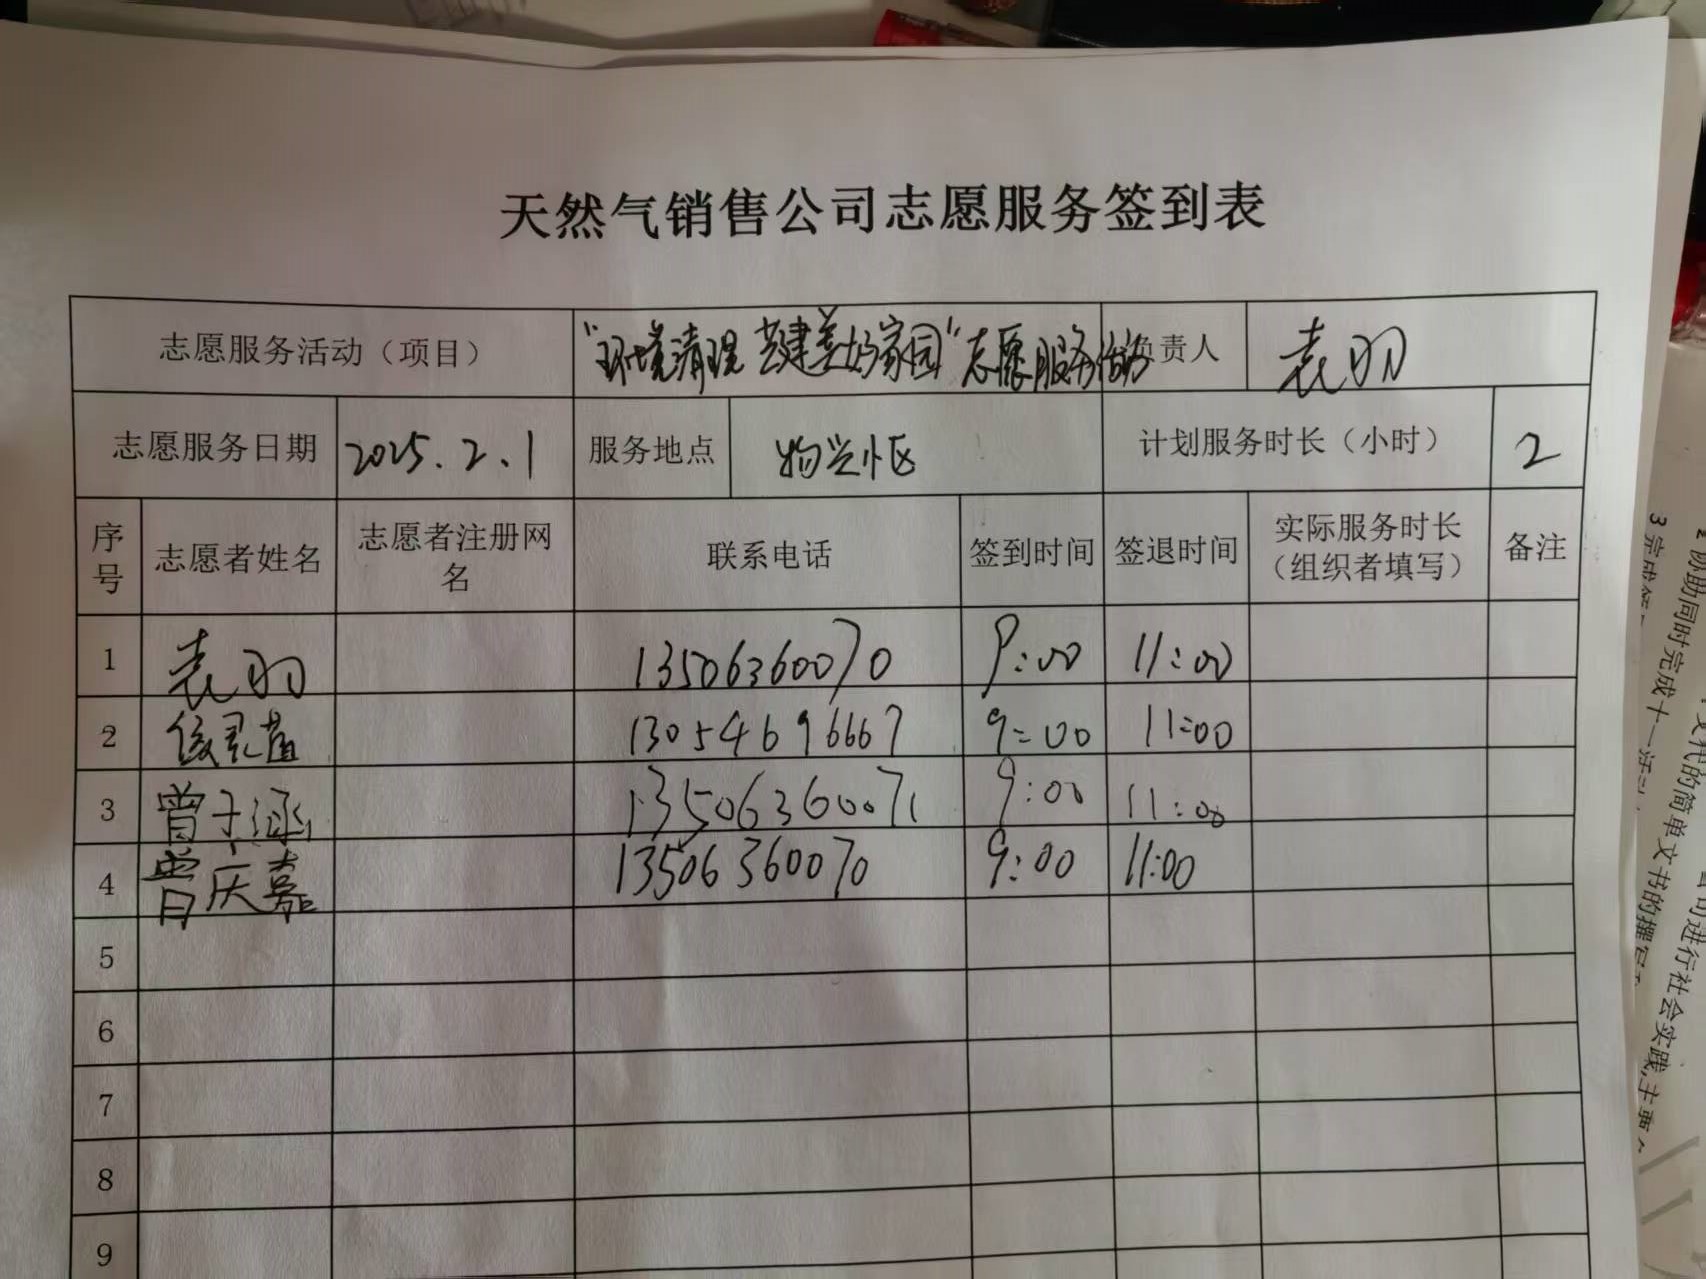 天然气销售公司志愿服务签到表
志愿服务活动（项目） “环境清理 共建美好家园”志愿服务活动 负责人 袁羽
志愿服务日期 2025.2.1 服务地点 物兴小区 计划服务时长（小时） 2
序号 志愿者姓名 志愿者注册网名 联系电话 签到时间 签退时间 实际服务时长（组织者填写） 备注
1 袁羽 13506360070 9:00 11:00
2 13054696667 9:00 11:00
3 曾子涵 13506360071 9:00 11:00
4 曾庆嘉 13506360070 9:00 11:00
5
6
7
8
9
3 完成
2 协助同时完成十一活动
文书的简单文书的撰写
司进行社会实践,主要